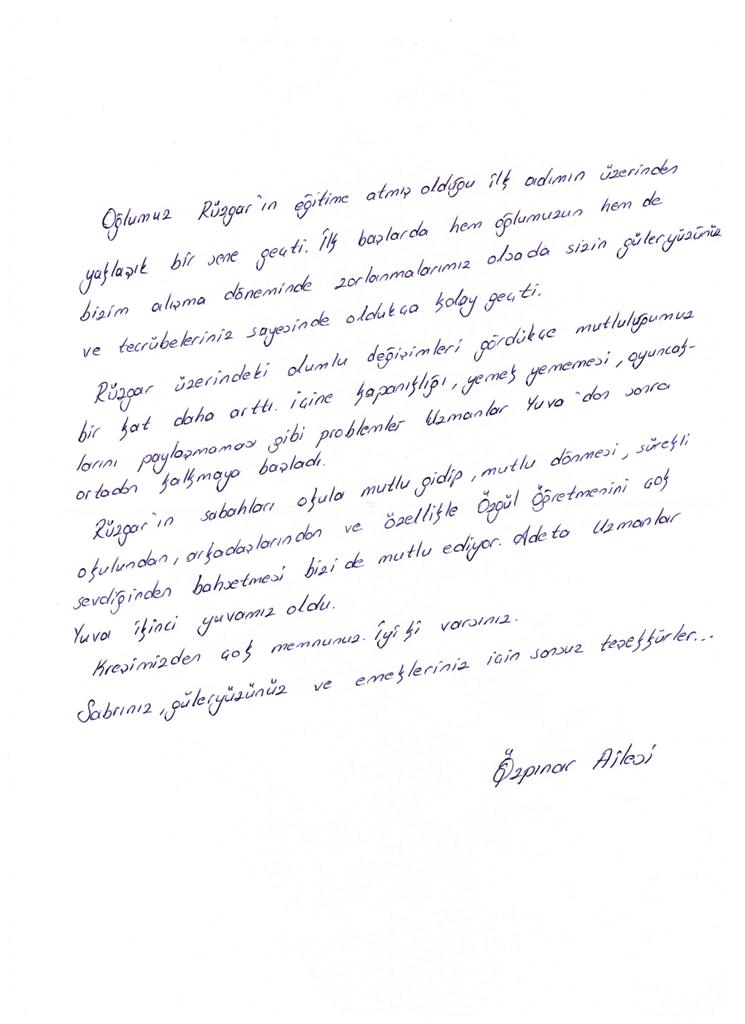 Oğlumuz Rüzgar'ın eğitime atmış olduğu ilk adımın üzerinden
yaklaşık bir sene geçti. İlk başlarda hem oğlumuzun hem de
bizim alışma döneminde zorlanmalarımız olsada sizin güleryüzünüz
ve tecrübeleriniz sayesinde oldukça kolay geçti.
Rüzgar üzerindeki olumlu değişimleri gördükçe mutluluğumuz
bir kat daha arttı. İçine kapanıklığı, yemek yememesi, oyuncak-
larını paylaşmaması gibi problemler Uzmanlar Yuva'dan sonra
ortadan kalkmaya başladı.
Rüzgar'ın sabahları okula mutlu gidip, mutlu dönmesi, sürekli
okulundan, arkadaşlarından ve özellikle Özgül Öğretmenini çok
sevdiğinden bahsetmesi bizi de mutlu ediyor. Adeta Uzmanlar
Yuva ikinci yuvamız oldu.
Kreşimizden çok memnunuz. İyi ki varsınız.
Sabrınız, güleryüzünüz ve emekleriniz için sonsuz teşekkürler...
Özpınar Ailesi